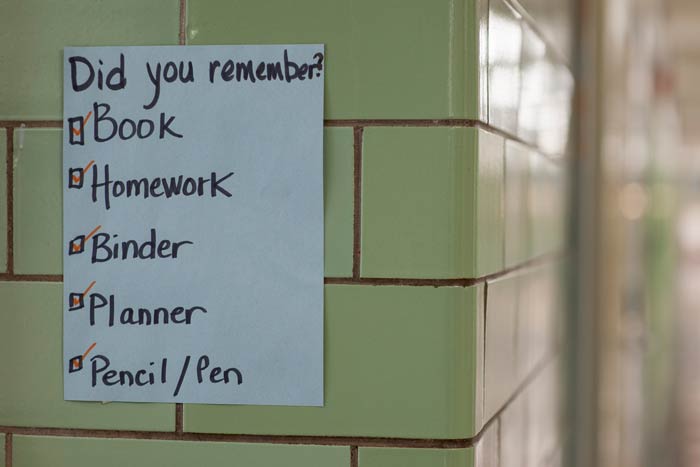 Did you remember?
Book
Homework
Binder
Planner
Pencil/Pen